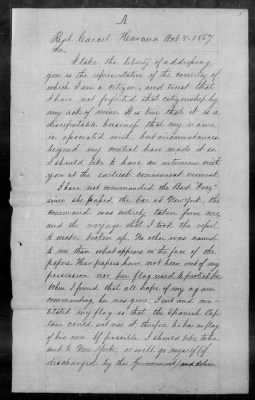 A
Carcel Havana Oct 8. 1857
Sir,
I take the liberty of addressing
you as the representative of the country of
which I am a citizen, and trust that
I have not forfeited that citizenship by
any act of mine. It is true that it is a
disreputable business that my name
is associated with but circumstances
beyond my control have made it so.
I should like to have an interview with
you at the earliest convenient moment.
I have not commanded the Bark
since she passed the bar at New York, the
command was entirely taken from me,
and the voyage that I took the vessel
to make, broken up. No other was named
to me than what appears on the face of the
papers. Her papers have not been out of my
possession nor her flag used to protect her
When I found that all hope of my again
commanding her was gone I cut and mu-
tilated my flag so that the Spanish Cap-
tain could not use it, therefore he has no flag
of his own. If possible I should like to be
sent to New York, or will go myself (if
discharged by this Government) and deliver